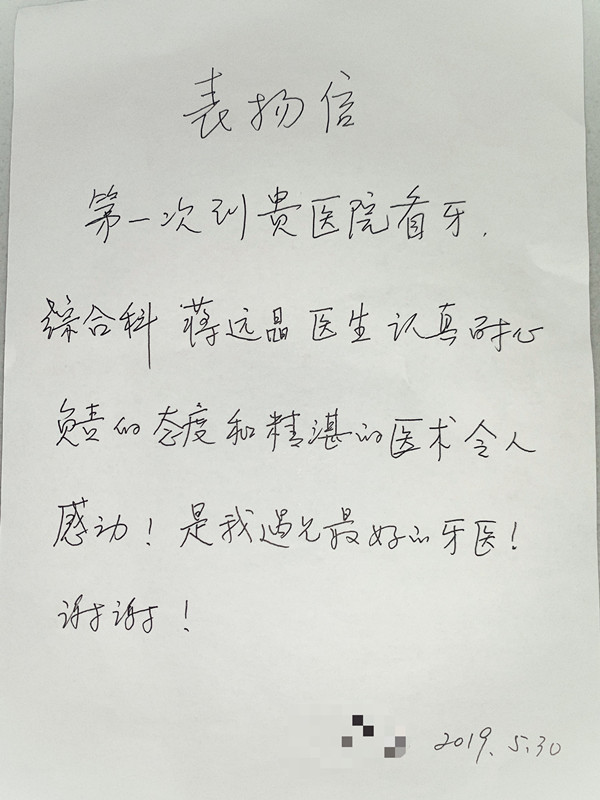 表扬信
第一次到贵医院看牙.
综合科 蒋远晶 医生认真耐心
负责的态度和精湛的医术令人
感动！是我遇见最好的牙医！
谢谢！
2019.5.30